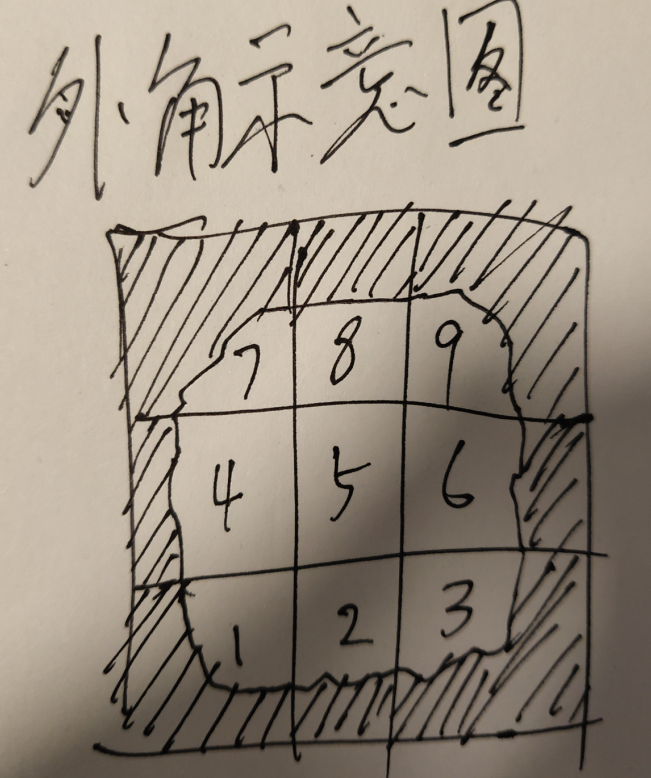 外角示意图
7 8 9
4 5 6
1 2 3